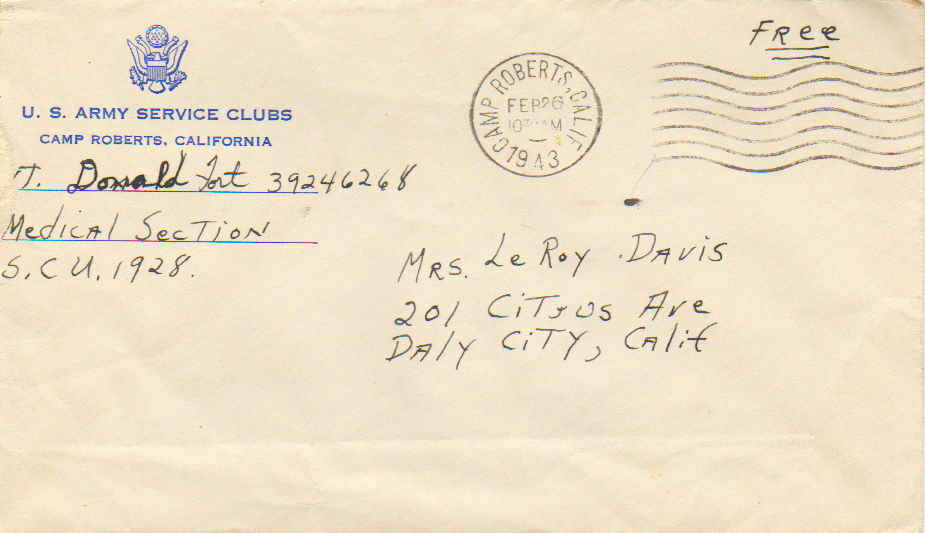 Free
U. S. ARMY SERVICE CLUBS
CAMP ROBERTS, CALIFORNIA
CAMP ROBERTS, CALIF
FEB 26
1943
T. Donald Fort 39246268
Medical Section
S.C.U. 1928.
Mrs. LeRoy Davis
201 Citrus Ave
Daly City, Calif